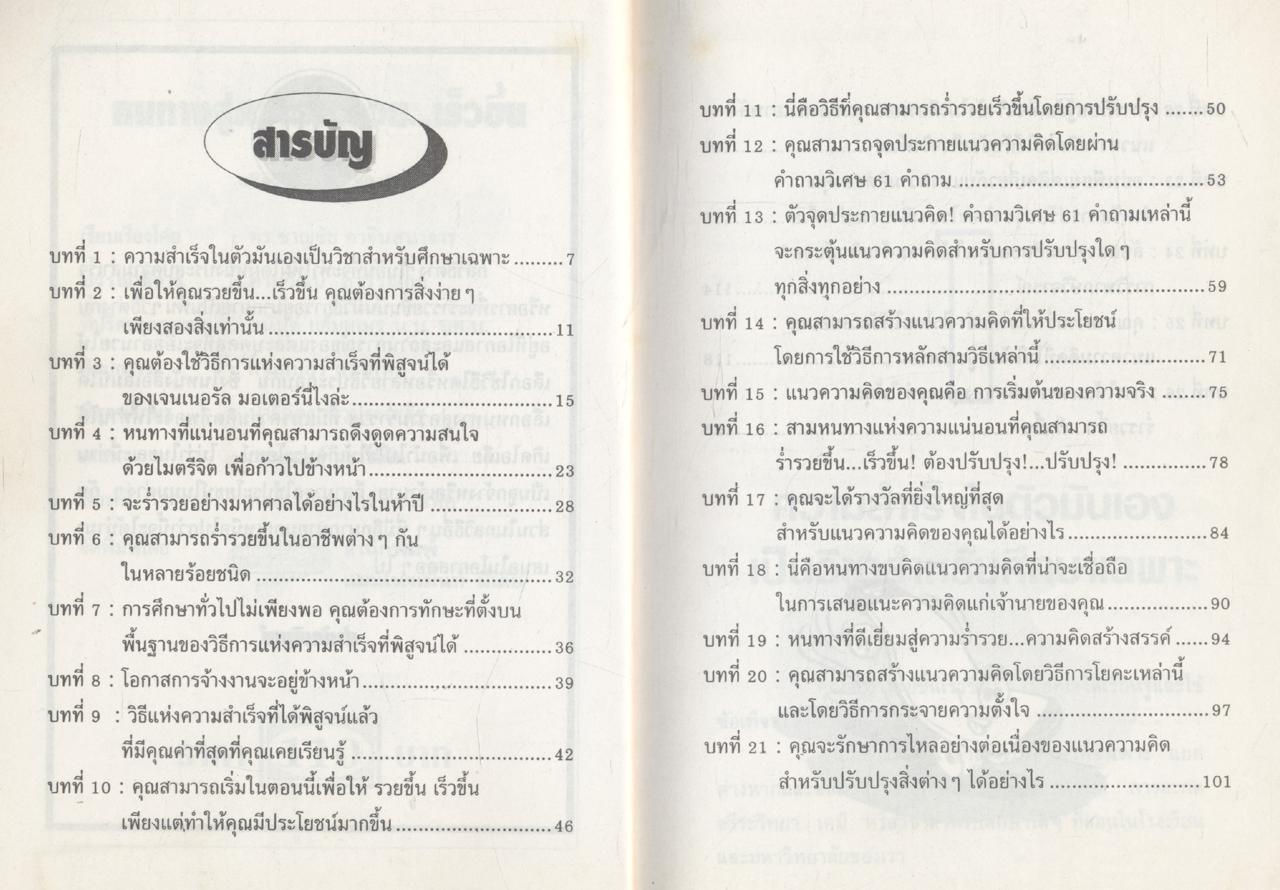 สารบัญ
บทที่ 1 : ความสำเร็จในตัวมันเองเป็นวิชาสำหรับศึกษาเฉพาะ.........7
บทที่ 2 : เพื่อให้คุณรวยขึ้น...เร็วขึ้น คุณต้องการสิ่งง่าย ๆ
เพียงสองสิ่งเท่านั้น................................................11
บทที่ 3 : คุณต้องใช้วิธีการแห่งความสำเร็จที่พิสูจน์ได้
ของเจนเนอรัล มอเตอร์นี่ไงล่ะ..................................15
บทที่ 4 : หนทางที่แน่นอนที่คุณสามารถดึงดูดความสนใจ
ด้วยไมตรีจิต เพื่อก้าวไปข้างหน้า..............................23
บทที่ 5 : จะร่ำรวยอย่างมหาศาลได้อย่างไรในห้าปี....................28
บทที่ 6 : คุณสามารถร่ำรวยขึ้นในอาชีพต่าง ๆ กัน
ในหลายร้อยชนิด..................................................32
บทที่ 7 : การศึกษาทั่วไปไม่เพียงพอ คุณต้องการทักษะที่ตั้งบน
พื้นฐานของวิธีการแห่งความสำเร็จที่พิสูจน์ได้...............36
บทที่ 8 : โอกาสการจ้างงานจะอยู่ข้างหน้า................................39
บทที่ 9 : วิธีแห่งความสำเร็จที่ได้พิสูจน์แล้ว
ที่มีคุณค่าที่สุดที่คุณเคยเรียนรู้..................................42
บทที่ 10 : คุณสามารถเริ่มในตอนนี้เพื่อให้ รวยขึ้น เร็วขึ้น
เพียงแต่ทำให้คุณมีประโยชน์มากขึ้น..........................46
บทที่ 11 : นี่คือวิธีที่คุณสามารถร่ำรวยเร็วขึ้นโดยการปรับปรุง.......50
บทที่ 12 : คุณสามารถจุดประกายแนวความคิดโดยผ่าน
คำถามวิเศษ 61 คำถาม..........................................53
บทที่ 13 : ตัวจุดประกายแนวคิด! คำถามวิเศษ 61 คำถามเหล่านี้
จะกระตุ้นแนวความคิดสำหรับการปรับปรุงใด ๆ
ทุกสิ่งทุกอย่าง......................................................59
บทที่ 14 : คุณสามารถสร้างแนวความคิดที่ให้ประโยชน์
โดยการใช้วิธีการหลักสามวิธีเหล่านี้...........................71
บทที่ 15 : แนวความคิดของคุณคือ การเริ่มต้นของความจริง........75
บทที่ 16 : สามหนทางแห่งความแน่นอนที่คุณสามารถ
ร่ำรวยขึ้น...เร็วขึ้น! ต้องปรับปรุง!...ปรับปรุง!..............78
บทที่ 17 : คุณจะได้รางวัลที่ยิ่งใหญ่ที่สุด
สำหรับแนวความคิดของคุณได้อย่างไร.......................84
บทที่ 18 : นี่คือหนทางขบคิดแนวความคิดที่น่าจะเชื่อถือ
ในการเสนอแนะความคิดแก่เจ้านายของคุณ.................90
บทที่ 19 : หนทางที่ดีเยี่ยมสู่ความร่ำรวย...ความคิดสร้างสรรค์......94
บทที่ 20 : คุณสามารถสร้างแนวความคิดโดยวิธีการโยคะเหล่านี้
และโดยวิธีการกระจายความตั้งใจ.............................97
บทที่ 21 : คุณจะรักษาการไหลอย่างต่อเนื่องของแนวความคิด
สำหรับปรับปรุงสิ่งต่าง ๆ ได้อย่างไร.........................101